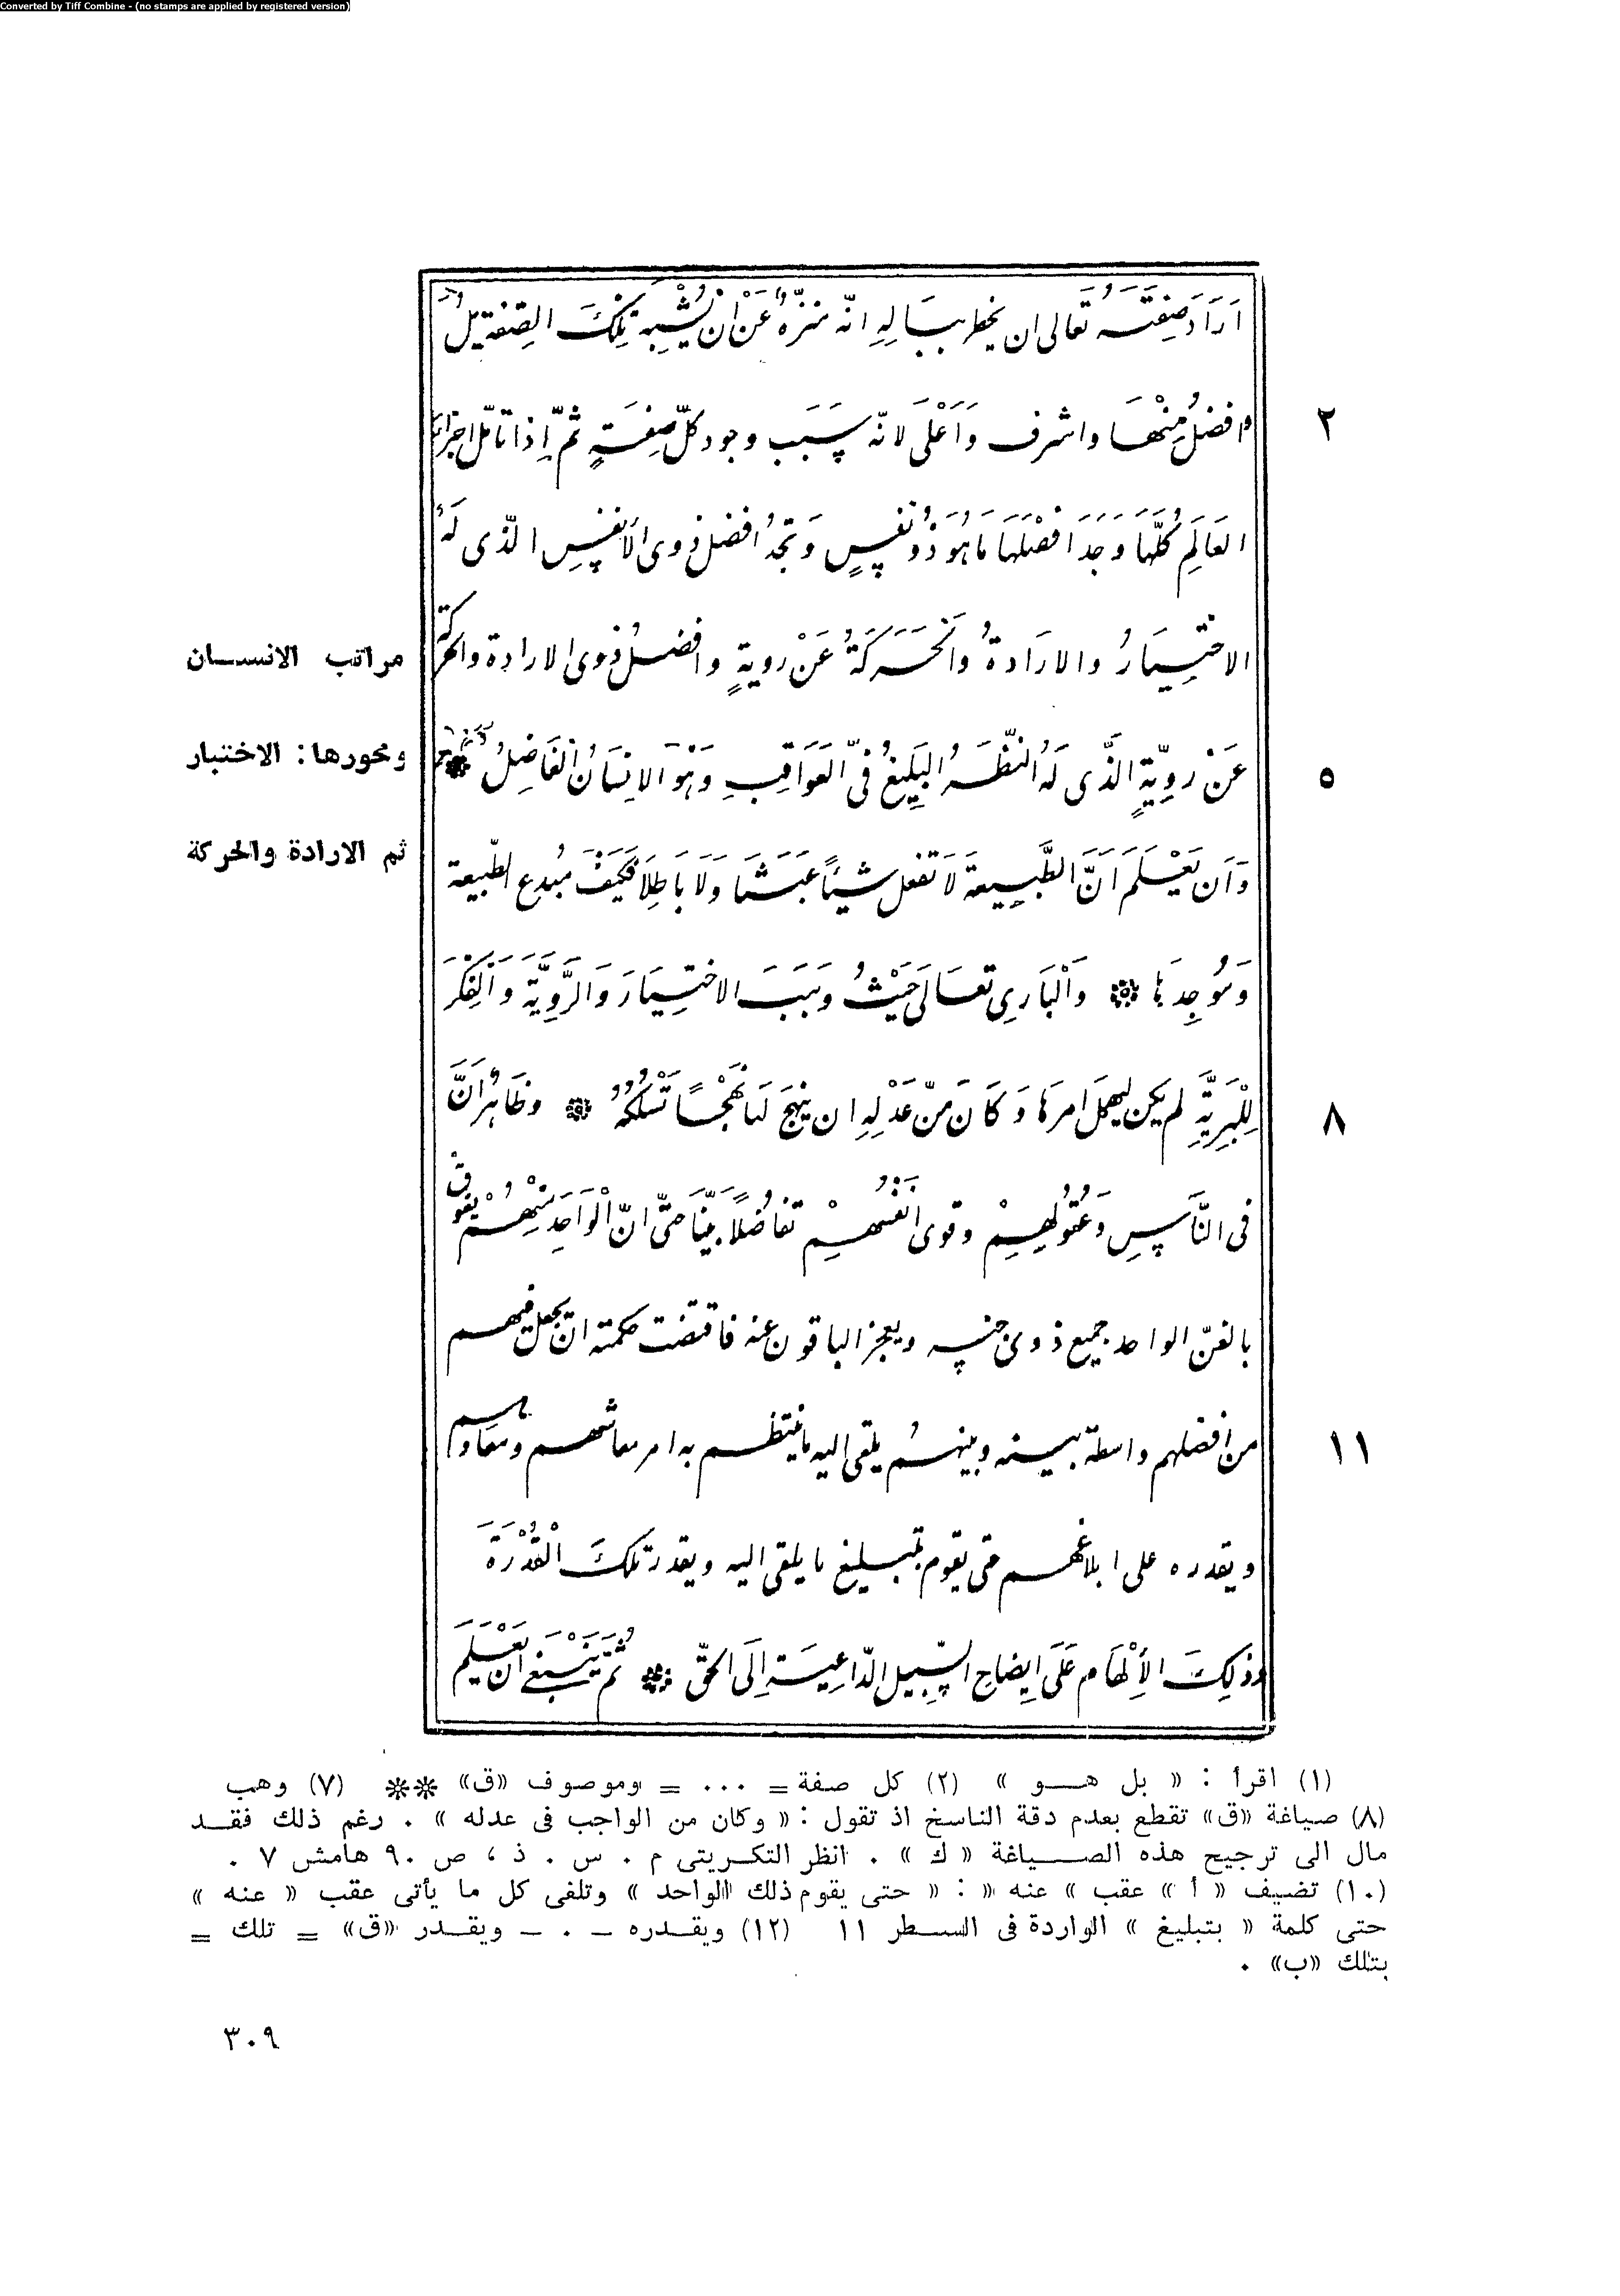 Converted by Tiff Combine - (no stamps are applied by registered version)
اَرَادَ صِفَتَه تَعالى ان يخطر ببَالِهِ انّه منزّهٌ عَنْ ان يُشْبِهَ تِلكَ الصِّفة بلْ
وافضلُ مِنْهَا واشرف وَاَعْلى لانّه سَبَب وجود كلّ صِفَةٍ ثمّ إِذا تامّل اجزاء
٢
العَالَمِ كُلّهَا وَجَدَ افضَلهَا مَا هُوَ ذُو نفسٍ وَتجدُ افضل ذوى الأنفسِ الّذى لَهُ
الاختِيَارُ والارَادةُ وَالحَرَكَةُ عَنْ رويةٍ وافضلُ ذوى الارادة والحركة
عَنْ روِيّةٍ الذَّى لَهُ النّظَرُ البَلِيغُ فى العَوَاقِبِ وَهُوَ الانِسَانُ الفَاضِلُ
٥
مراتب الانسان
ومحورها: الاختبار
ثم الارادة والحركة
وَاَن يَعْلَمَ اَنَّ الطَّبِيعة لَا تفعل شيئاً عبَثَا وَلَا بَاطِلاَ فَكَيفَ مُبدع الطّبيعة
وَمُوجِدَها ۞ وَالْبَارِى تعَالى حَيْثُ وهَبَ الاختِيَارَ وَالرَّوِيَّةَ وَالْفِكْرَ
لِلْبَرِيَّةِ لم يكن ليهمل امرها وَكَانَ مِنْ عَدْلِهِ ان ينهجَ لهَا نَهْجًا تَسْلكهُ ۞ وظَاهرُ اَنَّ
٨
فى النَّاسِ وَعُقُولِهِمْ وقوى انْفُسِهِمْ تفاضُلاً بيّنَا حتّى انّ الْوَاحِدَ مِنْهُمْ يفوق
بالفنّ الواحد جميع ذوى جنسه ويعجز الباقون عنه فاقتضت حكمته ان يجعل فيهم
من افضلهم واسطة بينه وبينهُم يلقى اليه ما ينتظم به امر معاشهم ومعادهم
١١
ويقدره على ابلاغهم حتى يقوم بتبليغ ما يلقى اليه ويقدر تلكَ الْقُدْرَةَ
وذلِكَ الأِلْهَام عَلَى إيضاح السَّبِيل الدّاعِيَة إِلَى الحقّ ۞ ثُمَّ يَنْبَغى ان يَعْلَمَ
(١) اقرأ : « بل هو » (٢) كل صفة = ... = وموصوف «ق» ** (٧) وهب
(٨) صياغة «ق» تقطع بعدم دقة الناسخ اذ تقول : « وكان من الواجب فى عدله » . رغم ذلك فقد
مال الى ترجيح هذه الصياغة « ك » . انظر التكريتى م . س . ذ ، ص ٩٠ هامش ٧ .
(١٠) تضيف « أ » عقب « عنه » : « حتى يقوم ذلك الواحد » وتلفى كل ما يأتى عقب « عنه »
حتى كلمة « بتبليغ » الواردة فى السطر ١١ (١٢) ويقدره – . – ويقدر «ق» = تلك =
بتلك «ب» .
٣٠٩